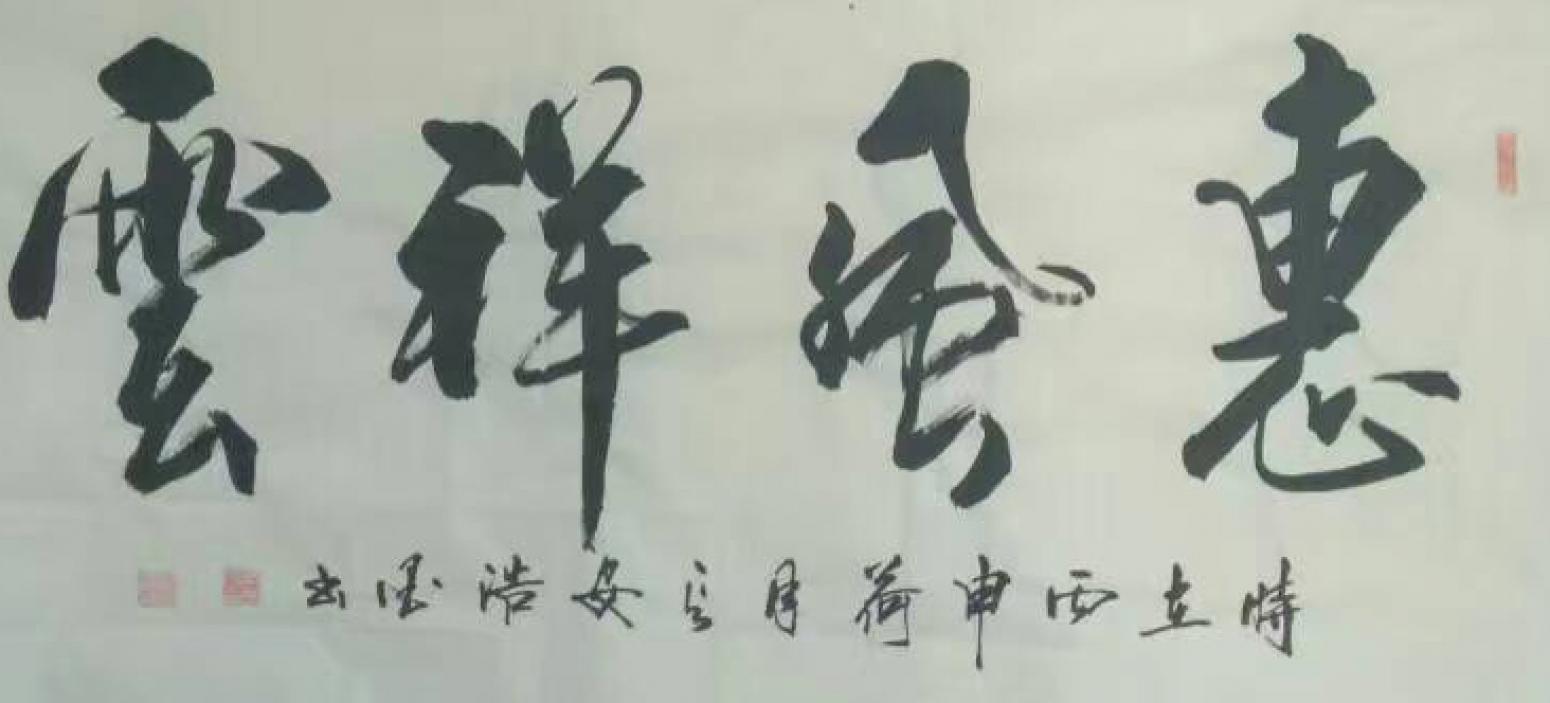 惠風祥雲
時在丙申荷月長安浩墨書